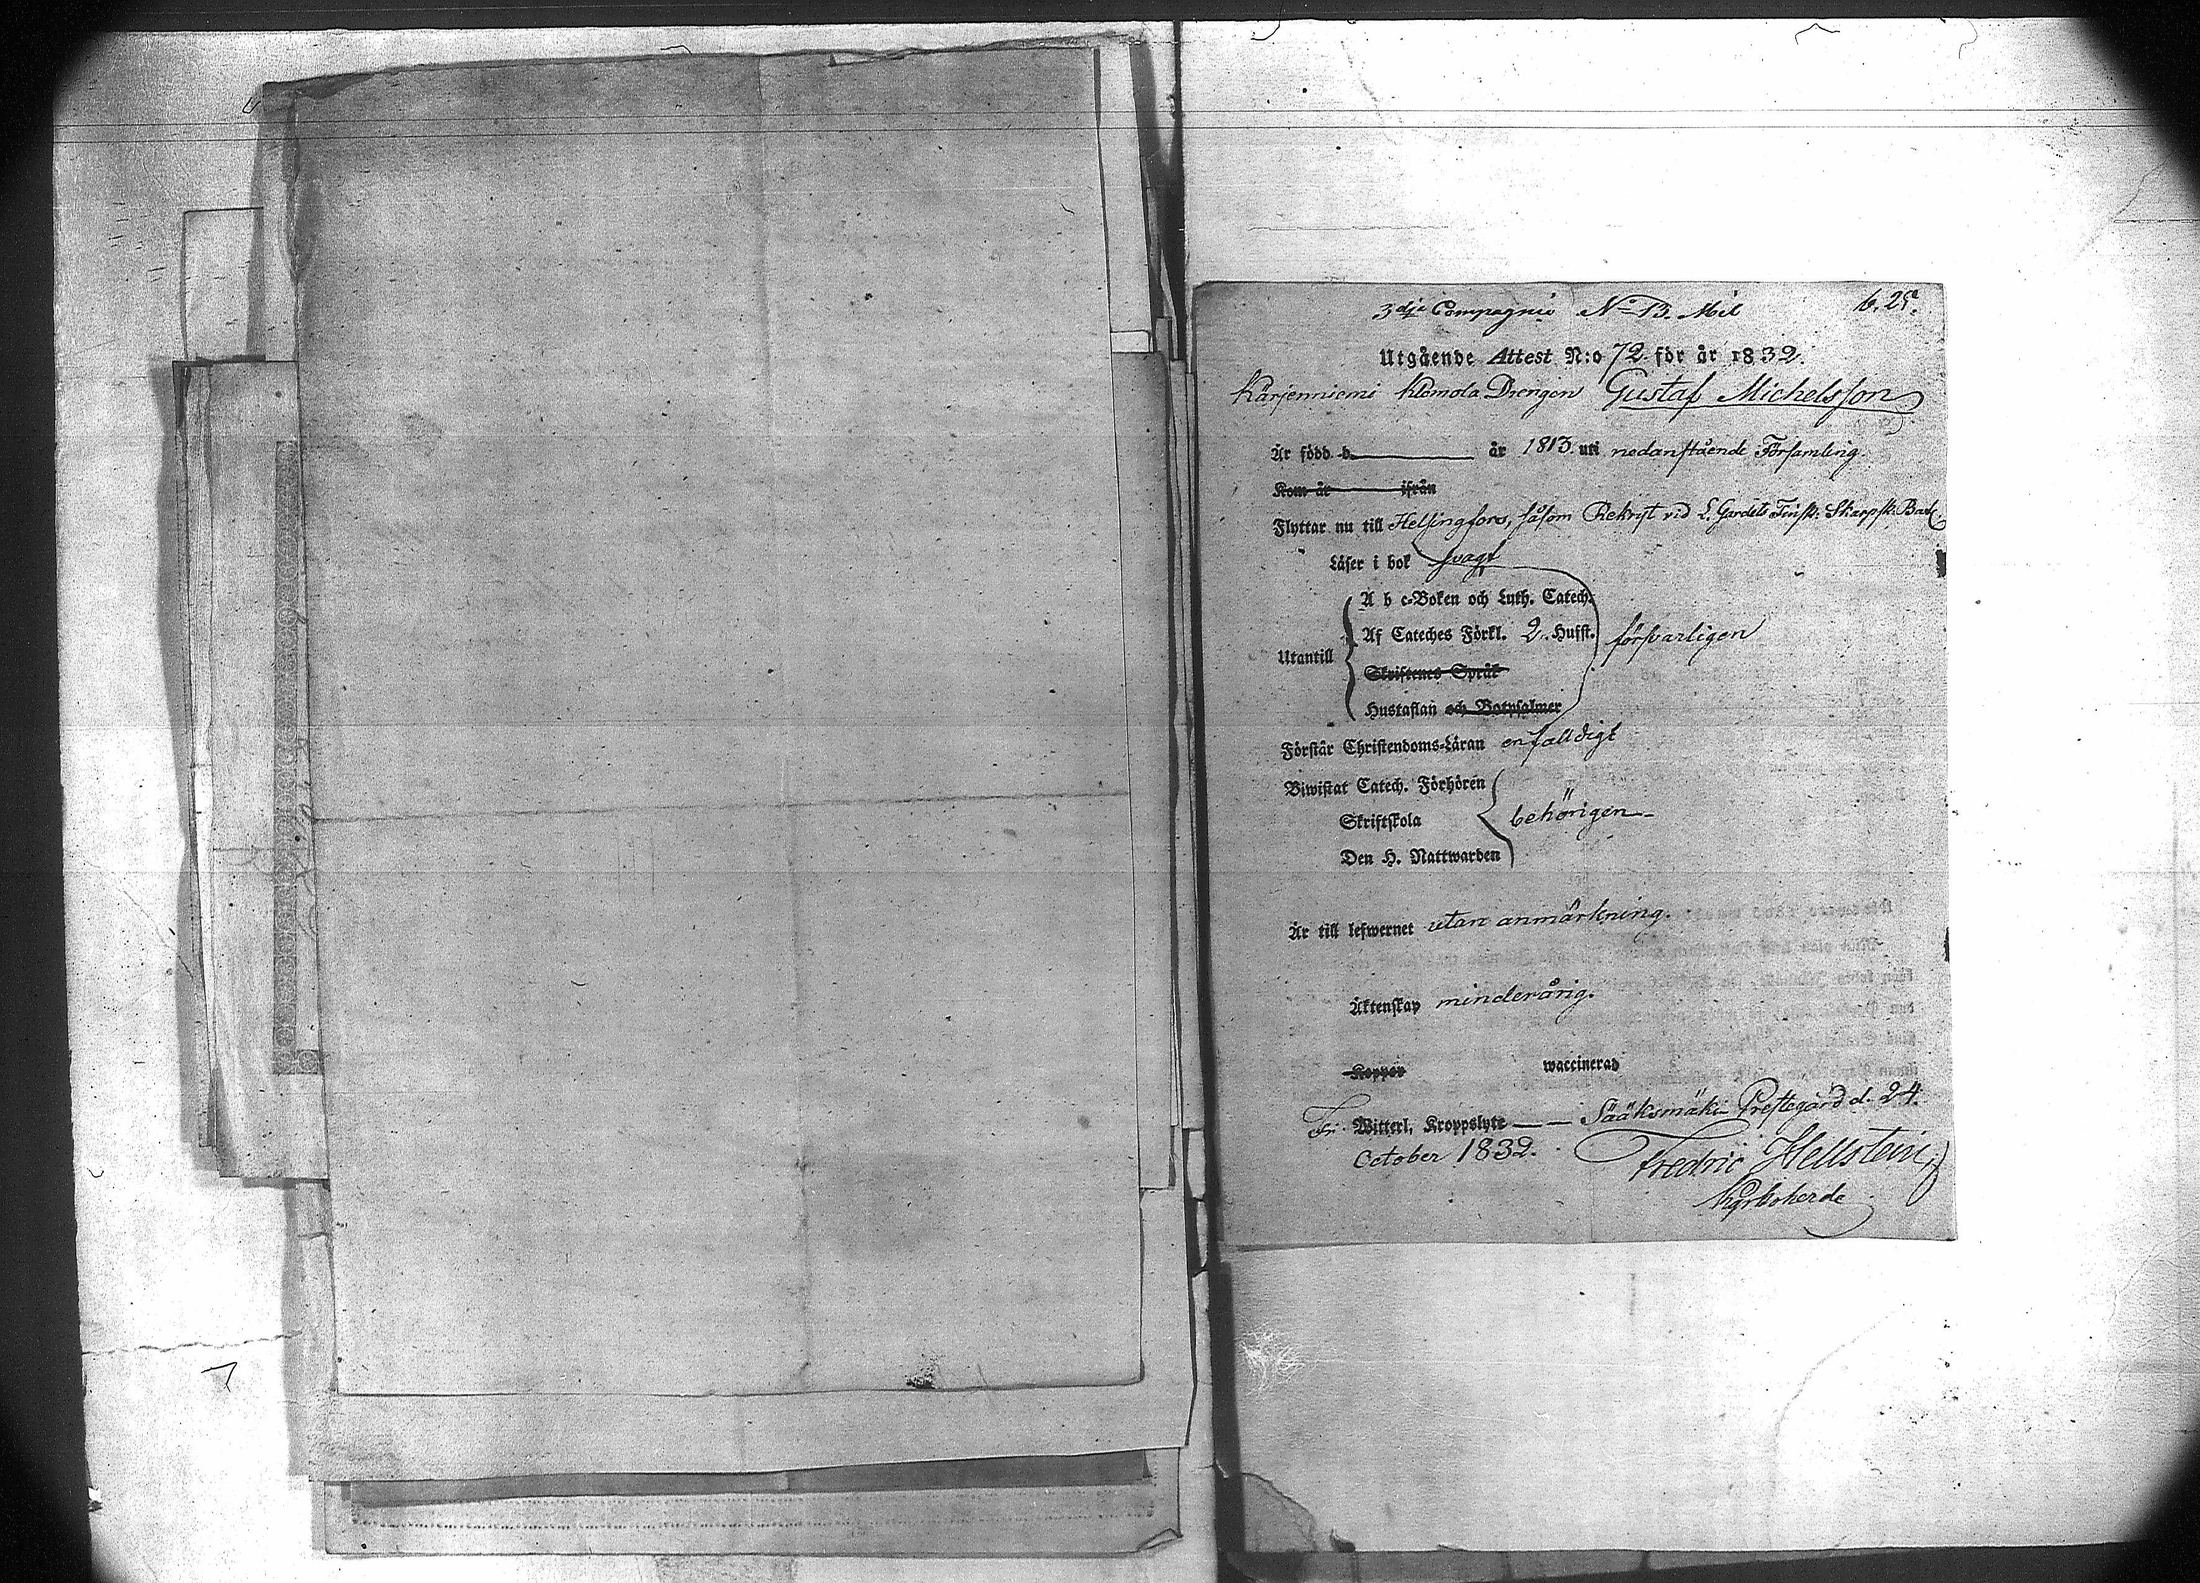 3dje Compagnie No 13. Mil
Utgående Attest N:o 72 för år 1832.
Kärjenniemi Klemola Drengen Gustaf Michelsson
Är född d. år 1813. uti nedanstående Församling.
Kom år ifrån
Flyttar nu till Helsingfors, såsom Rekryt vid L. Gardets Finsk: Skarpsk: Bat.
Läser i bok svagt
A b c-Boken och Luth. Catech.
Af Cateches Förkl. 2. Hufst. försvarligen
Utantill
Skriftenes Språk
Hustaflan och Botpsalmer
Förstår Christendoms-Läran enfalldigt
Biwistat Catech. Förhören
Skriftskola behörigen
Den H. Nattwarden
Är till lefwernet utan anmärkning.
Äktenskap minderårig.
Koppor waccinerad
Fri. Witterl. Kroppslyte Sääksmäki Prestegård d. 24.
October 1832. Fredric Hellsten
Kyrkoherde